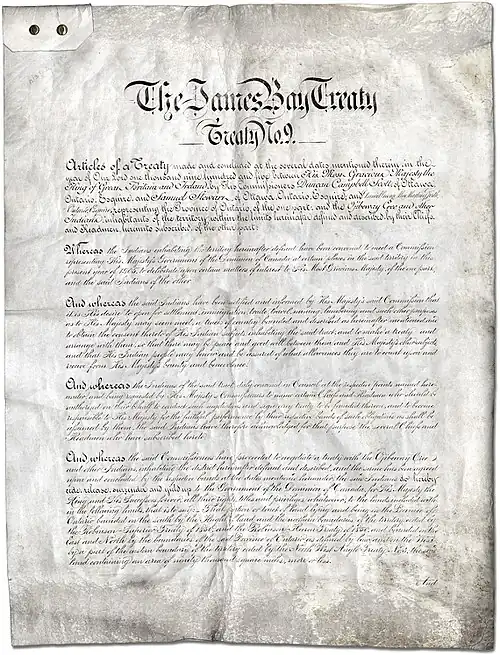 The James Bay Treaty
Treaty No. 9.
Articles of a Treaty made and concluded at the several dates mentioned therein, in the
year of Our Lord one thousand nine hundred and five between His Most Gracious Majesty the
King of Great Britain and Ireland, by His Commissioners Duncan Campbell Scott, of Ottawa
Ontario, Esquire, and Samuel Stewart, of Ottawa Ontario, Esquire, and
representing the Province of Ontario, of the one part; and the Ojibeway Cree and other
Indians, inhabitants of the territory within the limits hereinafter defined and described, by their Chiefs
and Headmen hereunto subscribed, of the other part:
Whereas the Indians inhabiting the territory hereinafter defined have been convened to meet a Commission
representing His Majesty's Government of the Dominion of Canada at certain places in the said territory in this
present year of 1905, to deliberate upon certain matters of interest to His Most Gracious Majesty, of the one part,
and the said Indians of the other.
And whereas the said Indians have been notified and informed by His Majesty's said Commission that
it is His desire to open for settlement, immigration, trade, travel, mining, lumbering and such other purposes
as to His Majesty may seem meet, a tract of country bounded and described as hereinafter mentioned, and
to obtain the consent thereto of His Indian subjects inhabiting the said tract, and to make a treaty and
arrange with them, so that there may be peace and good will between them and His Majesty's other subjects,
and that His Indian people may know and be assured of what allowances they are to count upon and
receive from His Majesty's bounty and benevolence.
And whereas the Indians of the said tract, duly convened in Council at the respective points named here-
under, and being requested by His Majesty's Commissioners to name certain Chiefs and Headmen who should be
authorized on their behalf to conduct such negotiations and sign any treaty to be founded thereon, and to become
responsible to His Majesty for the faithful performance by their respective bands of such obligations as shall be
assumed by them, the said Indians have therefore acknowledged for that purpose the several Chiefs and
Headmen who have subscribed hereto.
And whereas the said Commissioners have proceeded to negotiate a treaty with the Ojibeway, Cree
and other Indians, inhabiting the district hereinafter defined and described, and the same has been agreed
upon and concluded by the respective bands at the dates mentioned hereunder, the said Indians do hereby
cede, release, surrender and yield up to the Government of the Dominion of Canada, for His Majesty the
King and His Successors for ever, all their rights, titles and privileges whatsoever, to the lands included within
the following limits, that is to say: That portion or tract of land lying and being in the Province of
Ontario bounded on the south by the Height of Land and the northern boundaries of the territory ceded by
the Robinson-Superior Treaty of 1850, and the Robinson-Huron Treaty of 1850, and bounded on the
East and North by the boundaries of the said Province of Ontario as defined by law, and on the West
by a part of the eastern boundary of the territory ceded by the North West Angle Treaty No. 3; the said
land containing an area of ninety thousand square miles, more or less.
And